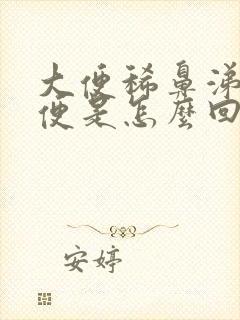 大便稀鼻涕
便是怎麼回
安婷